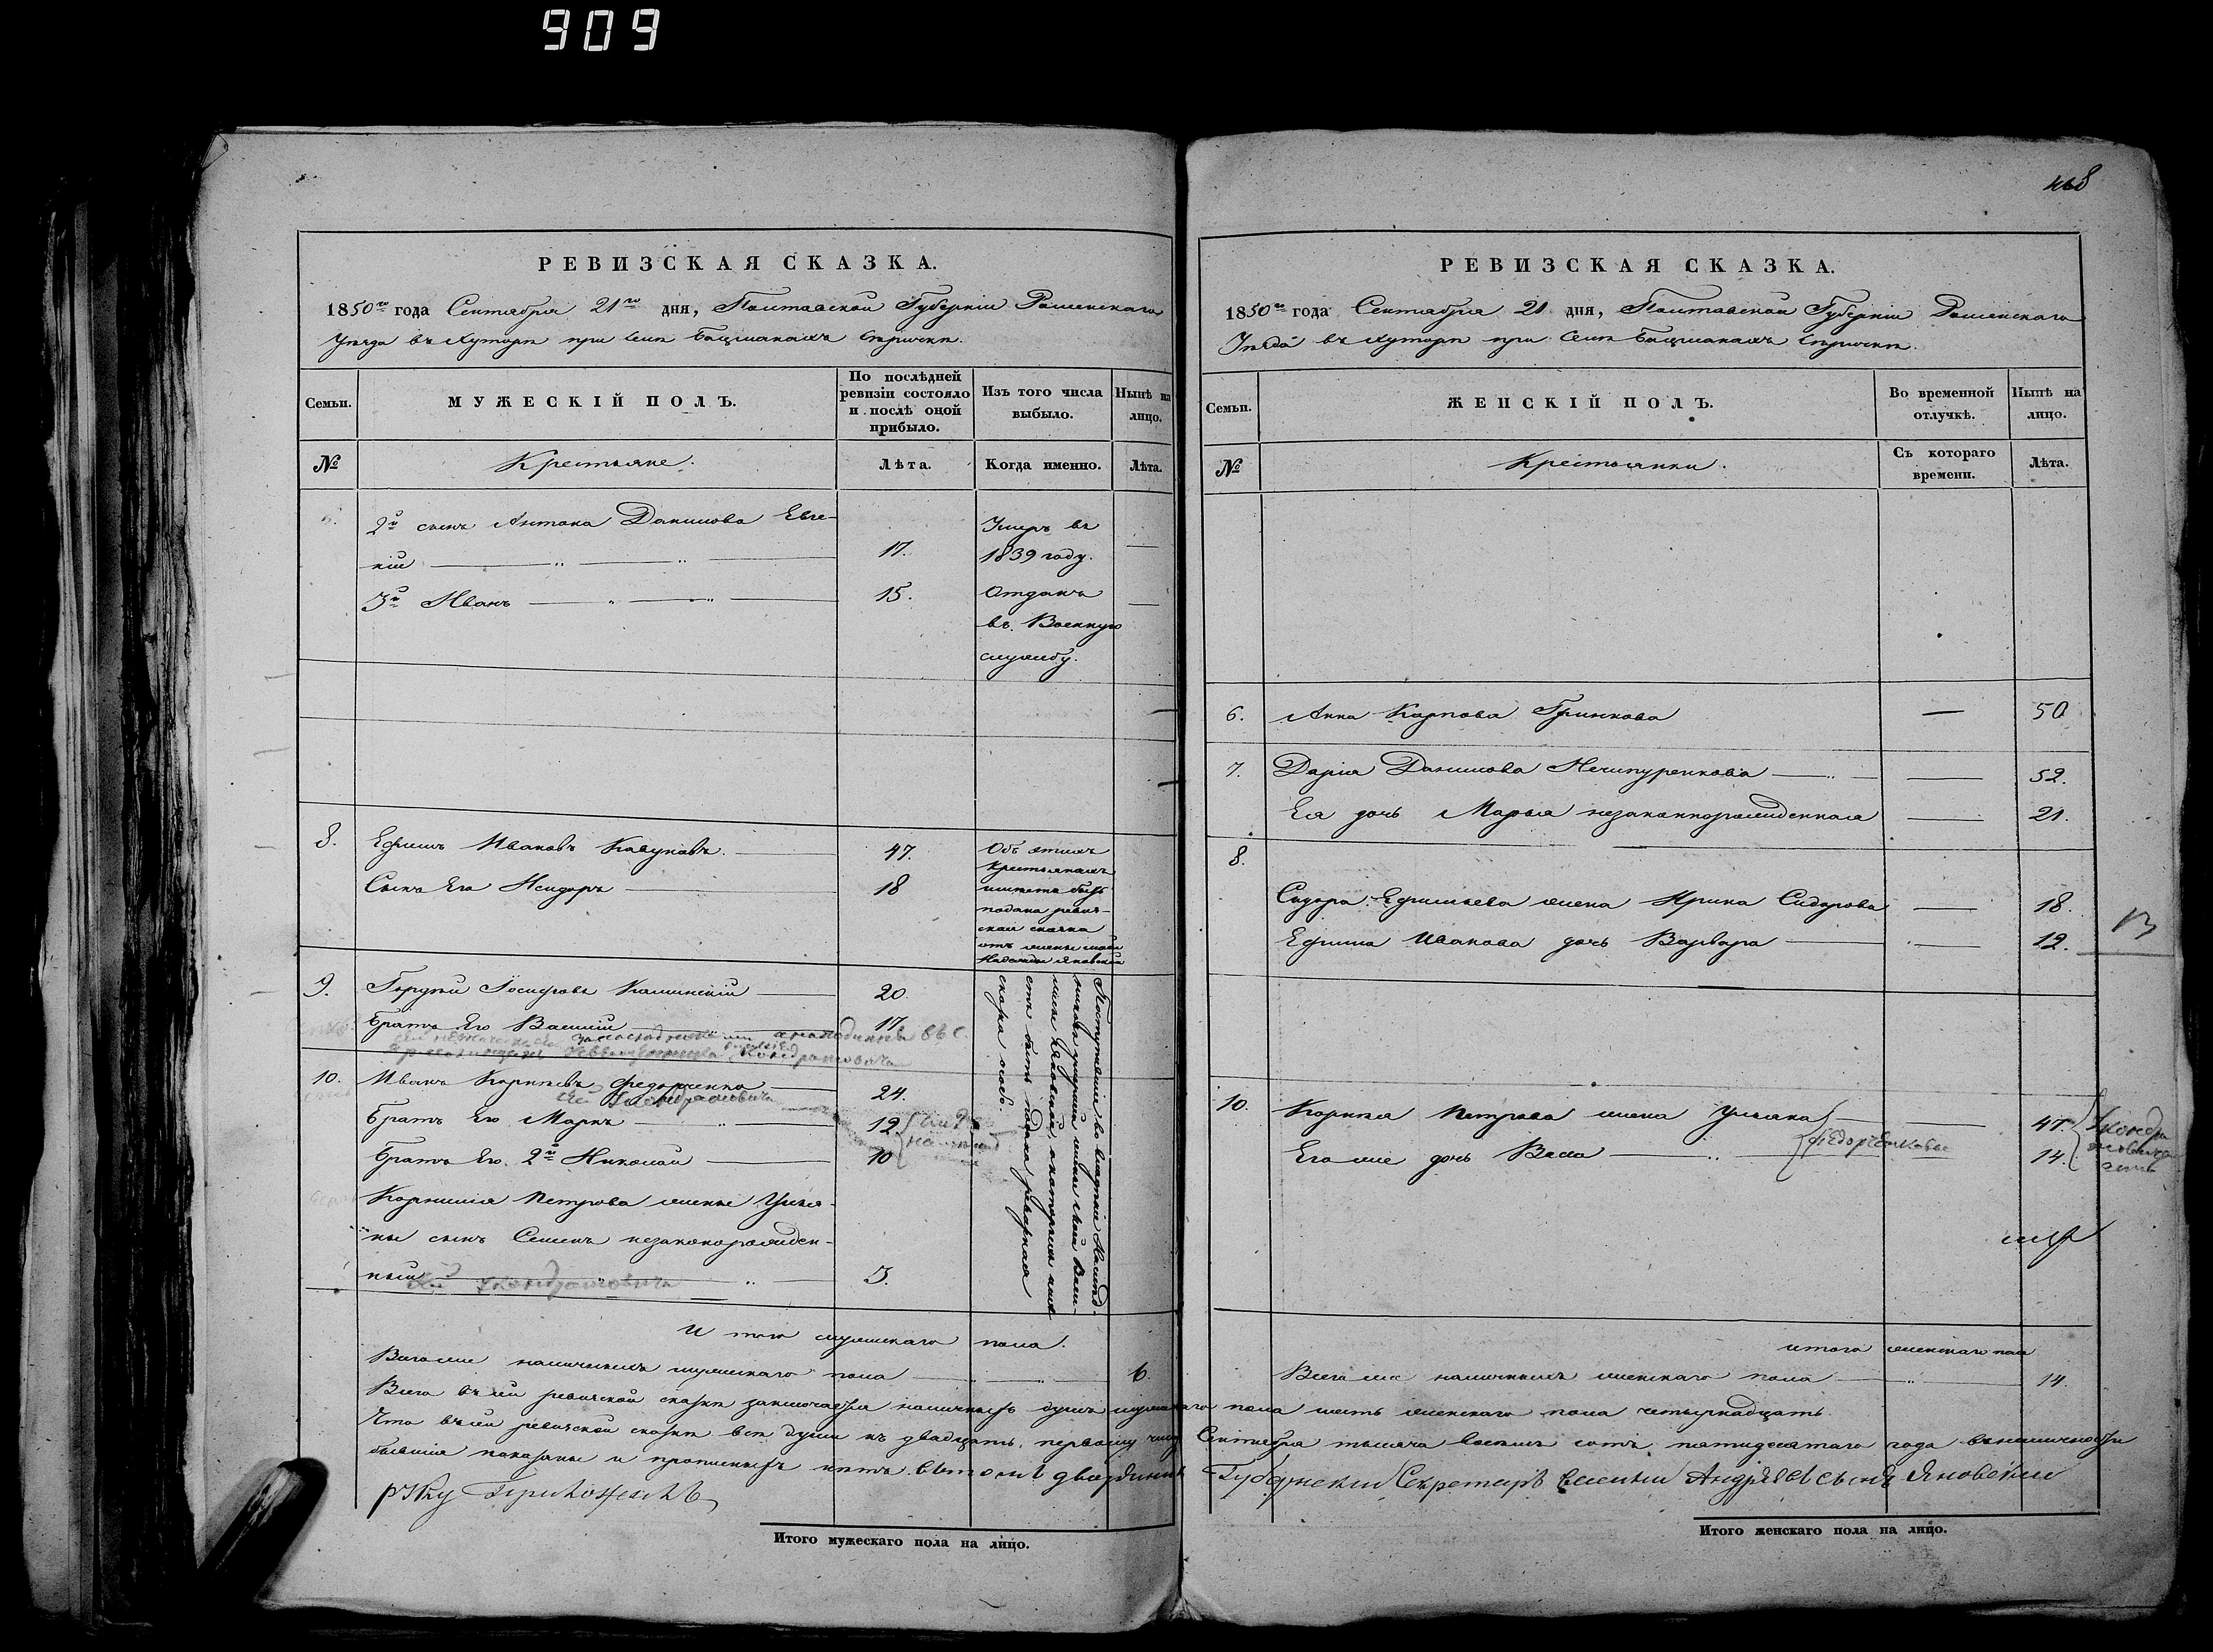 909
РЕВИЗСКАЯ СКАЗКА.
1850го года Сентября 21го дня, Полтавской Губерніи Роменскаго
Уѣзда въ Хуторѣ при Селѣ Бацманахъ
Семьи.
МУЖЕСКІЙ ПОЛЪ.
По послѣдней ревизіи состояло и послѣ оной прибыло.
Изъ того числа выбыло.
Нынѣ на лицо.
№
Крестьяне.
Лѣта.
Когда именно.
Лѣта.
2й сынъ Антона Данилова Евге-
ній 17. Умеръ въ 1839 году.
3й Иванъ 15. Отданъ въ Военную службу.
8. Ефимъ Ивановъ Кавуновъ. 47.
Сынъ Его Исидоръ 18
Объ этихъ
Крестьянахъ
имѣетъ быть
подана ревиз-
ская сказка
отъ жены моей
Надежды Яновской
9. Гордѣй Іосифовъ Калинскій 20.
Братъ Его Василій 17.
10. Иванъ Корніевъ Федорченко 24.
Братъ Его Маркъ 12
Братъ Его 2й Николай 10
Корнилія Петрова жены Улья-
ны сынъ Семенъ незаконорожден-
ный 3.
Поступившіе во владѣніе Наслѣд-
никовъ умершей жены моей
Яновской, о которыхъ имѣ-
етъ быть подана ревизкая
скаска особ.
И того мужескаго пола.
Всего же наличныхъ мужескаго пола 6.
468
РЕВИЗСКАЯ СКАЗКА.
1850го года Сентября 21 дня, Полтавской Губерніи Роменскаго
Уѣзда въ Хуторѣ при Селѣ Бацманахъ
Семьи.
ЖЕНСКІЙ ПОЛЪ.
Во временной отлучкѣ.
Нынѣ на лицо.
№
Крестьянки.
Съ котораго времени.
Лѣта.
6. Анна Карпова Гринкова — 50
7. Дарія Данилова Нечипуренкова — 52.
Ея дочь Марья незаконнорожденная — 21.
8.
Сидора Ефимьева жена Ирина Сидорова — 18.
Ефима Иванова дочь Варвара — 12.
10. Корнилія Петрова жена Ульяна 47
Его же дочь Васса 14.
Федорченковы
итого женскаго пола
Всего же наличныхъ женскаго пола 14.
Всего въ сей ревизской сказкѣ заключается наличныхъ душъ мужскаго пола шесть женскаго пола четырнадцать.
Что въ сей ревизской сказкѣ всѣ души къ двадцать первому числу Сентября тысяча восемь сотъ пятидесятаго года въ наличности
бывшія показаны и прописныхъ нѣтъ. Губернскій Секретарь Андрѣевъ сынъ Яновскій
руку приложилъ
Итого мужескаго пола на лицо.
Итого женскаго пола на лицо.